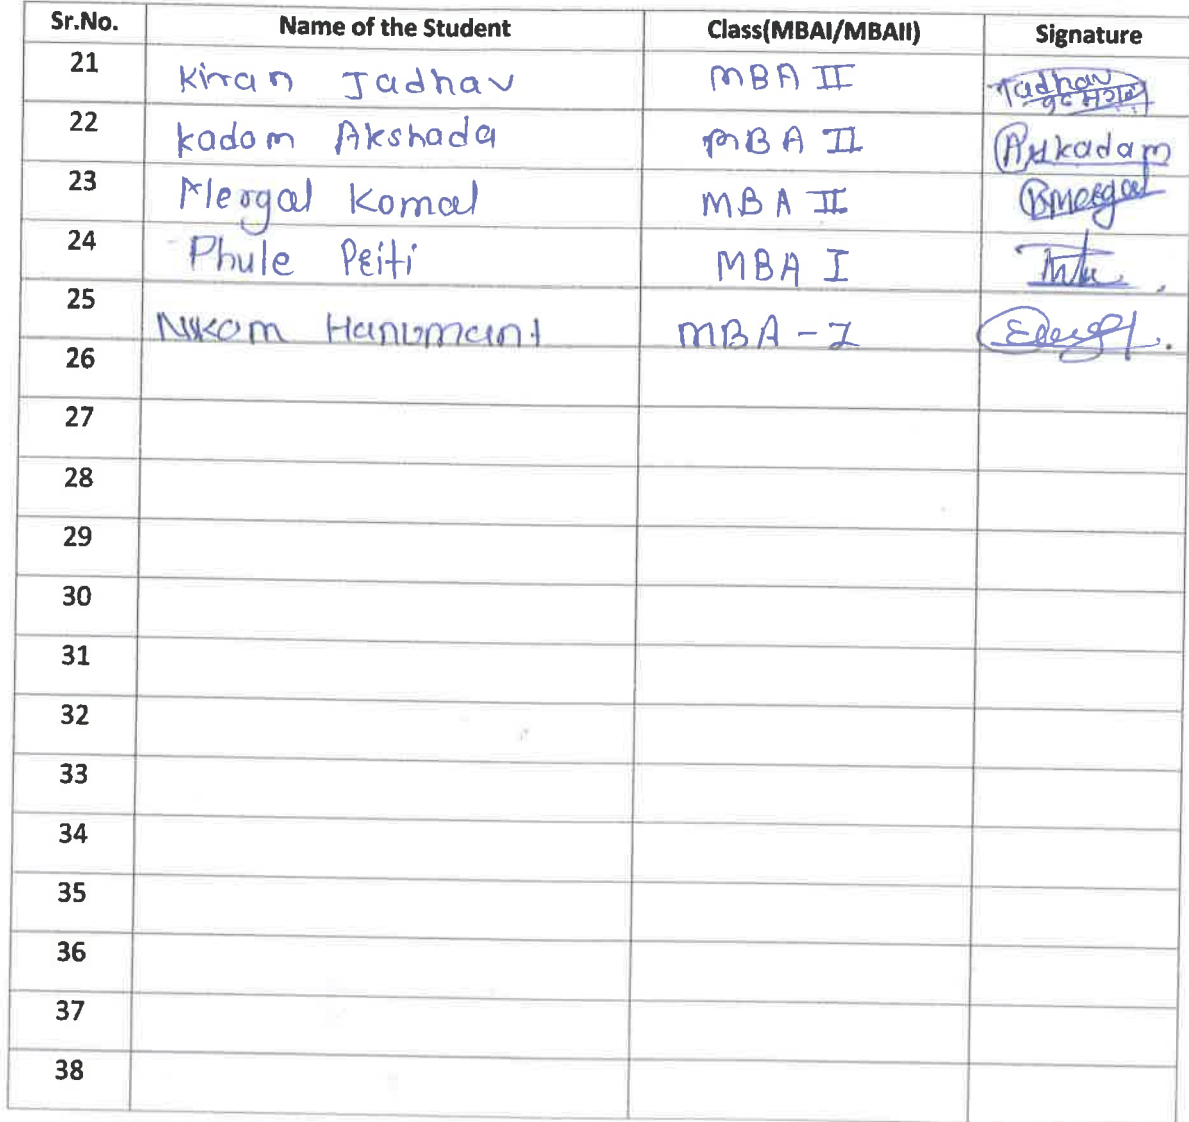 Sr.No. Name of the Student Class(MBAI/MBAII) Signature
21 Kiran Jadhav MBA II Jadhav
22 Kadam Akshada MBA II Askadam
23 Mergal Komal MBA II Bmergal
24 Phule Priti MBA I
25 Nikam Hanumant MBA - I
26
27
28
29
30
31
32
33
34
35
36
37
38